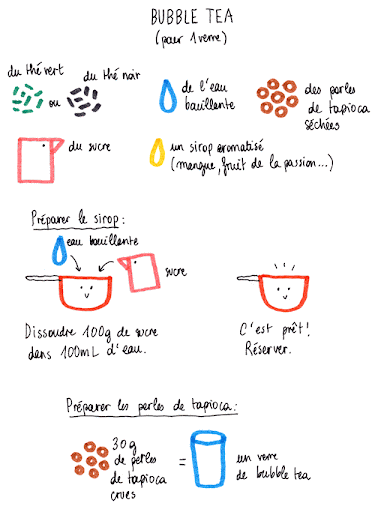 BUBBLE TEA
(pour 1 verre)
du thé vert
ou
du thé noir
de l'eau
bouillante
des perles
de tapioca
séchées
du sucre
un sirop aromatisé
(mangue, fruit de la passion...)
Préparer le sirop :
eau bouillante
sucre
Dissoudre 100g de sucre
dans 100mL d'eau.
C'est prêt !
Réserver.
Préparer les perles de tapioca :
30 g
de perles
de tapioca
crues
=
un verre
de bubble tea